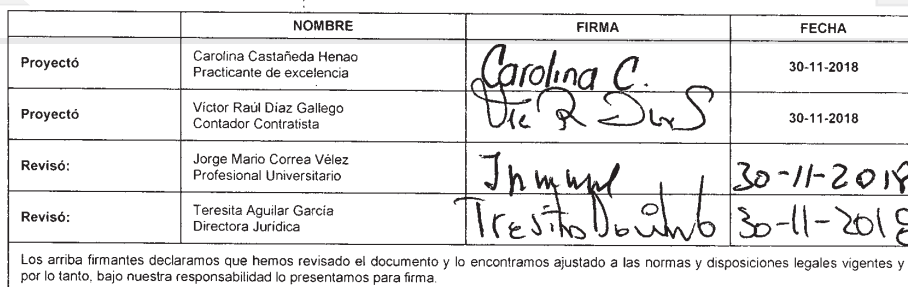 NOMBRE FIRMA FECHA
Proyectó Carolina Castañeda Henao
Practicante de excelencia Carolina C. 30-11-2018
Proyectó Víctor Raúl Díaz Gallego
Contador Contratista 30-11-2018
Revisó: Jorge Mario Correa Vélez
Profesional Universitario 30-11-2018
Revisó: Teresita Aguilar García
Directora Jurídica 30-11-2018
Los arriba firmantes declaramos que hemos revisado el documento y lo encontramos ajustado a las normas y disposiciones legales vigentes y
por lo tanto, bajo nuestra responsabilidad lo presentamos para firma.